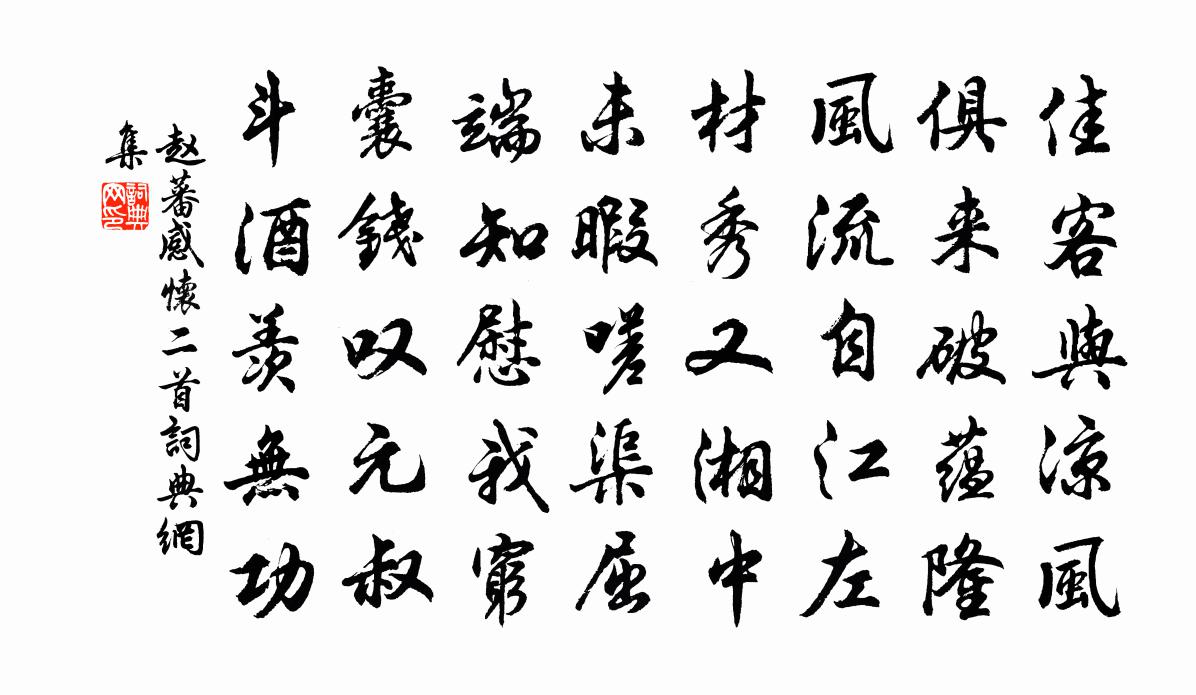 佳客與涼風
俱来破蕴隆
風流自江左
材秀又湘中
未暇嗟渠屈
端知慰我窮
囊錢叹元叔
斗酒羨無功
赵蕃感懷二首詞典網
集
詞典
网印